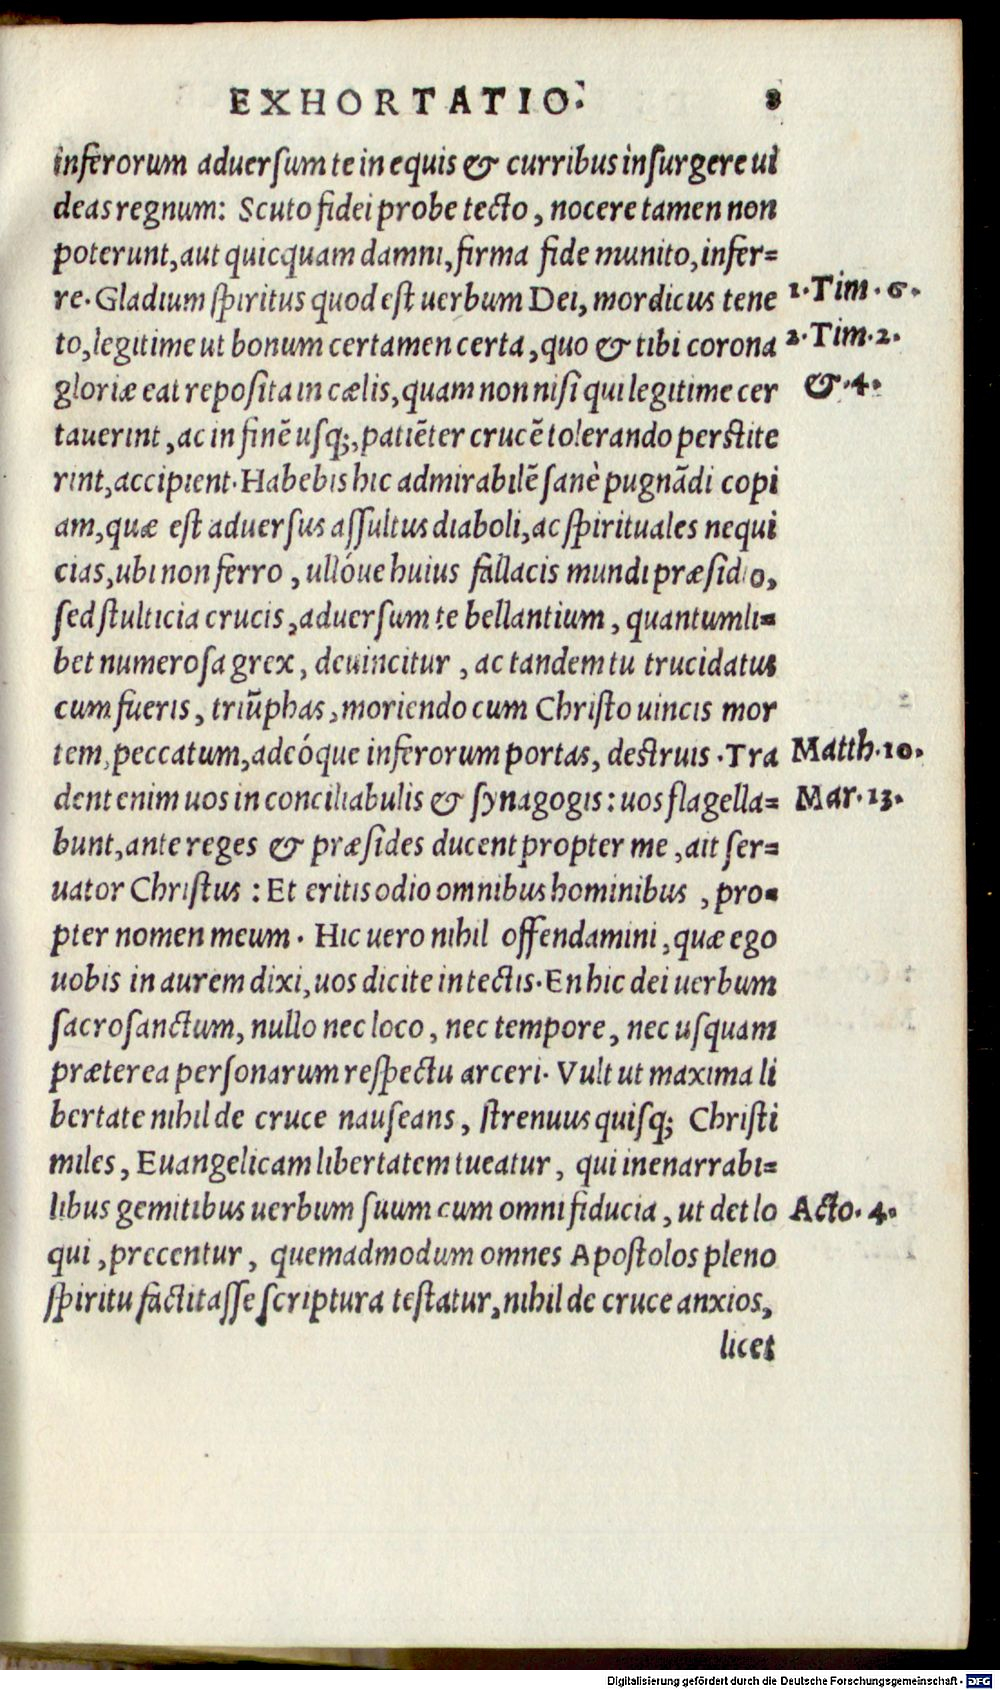 EXHORTATIO. 8
inferorum aduersum te in equis & curribus insurgere ui
deas regnum: Scuto fidei probe tecto, nocere tamen non
poterunt, aut quicquam damni, firma fide munito, infer=
re. Gladium spiritus quod est uerbum Dei, mordicus tene
1. Tim. 6.
to, legitime ut bonum certamen certa, quo & tibi corona
2. Tim. 2.
gloriæ eat reposita in cælis, quam non nisi qui legitime cer
& .4.
tauerint, ac in finē usq;, patiēter crucē tolerando perstite
rint, accipient. Habebis hic admirabilē sanè pugnādi copi
am, quæ est aduersus assultus diaboli, ac spirituales nequi
cias, ubi non ferro, ullóue huius fallacis mundi præsidio,
sed stulticia crucis, aduersum te bellantium, quantumli=
bet numerosa grex, deuincitur, ac tandem tu trucidatus
cum fueris, triūphas, moriendo cum Christo uincis mor
tem, peccatum, adeóque inferorum portas, destruis. Tra
Matth. 10.
dent enim uos in conciliabulis & synagogis: uos flagella=
Mar. 13.
bunt, ante reges & præsides ducent propter me, ait ser=
uator Christus: Et eritis odio omnibus hominibus, pro=
pter nomen meum. Hic uero nihil offendamini, quæ ego
uobis in aurem dixi, uos dicite in tectis. En hic dei uerbum
sacrosanctum, nullo nec loco, nec tempore, nec usquam
præterea personarum respectu arceri. Vult ut maxima li
bertate nihil de cruce nauseans, strenuus quisq; Christi
miles, Euangelicam libertatem tueatur, qui inenarrabi=
libus gemitibus uerbum suum cum omni fiducia, ut det lo
Acto. 4.
qui, precentur, quemadmodum omnes Apostolos pleno
spiritu factitasse scriptura testatur, nihil de cruce anxios,
licet
Digitalisierung gefördert durch die Deutsche Forschungsgemeinschaft - DFG